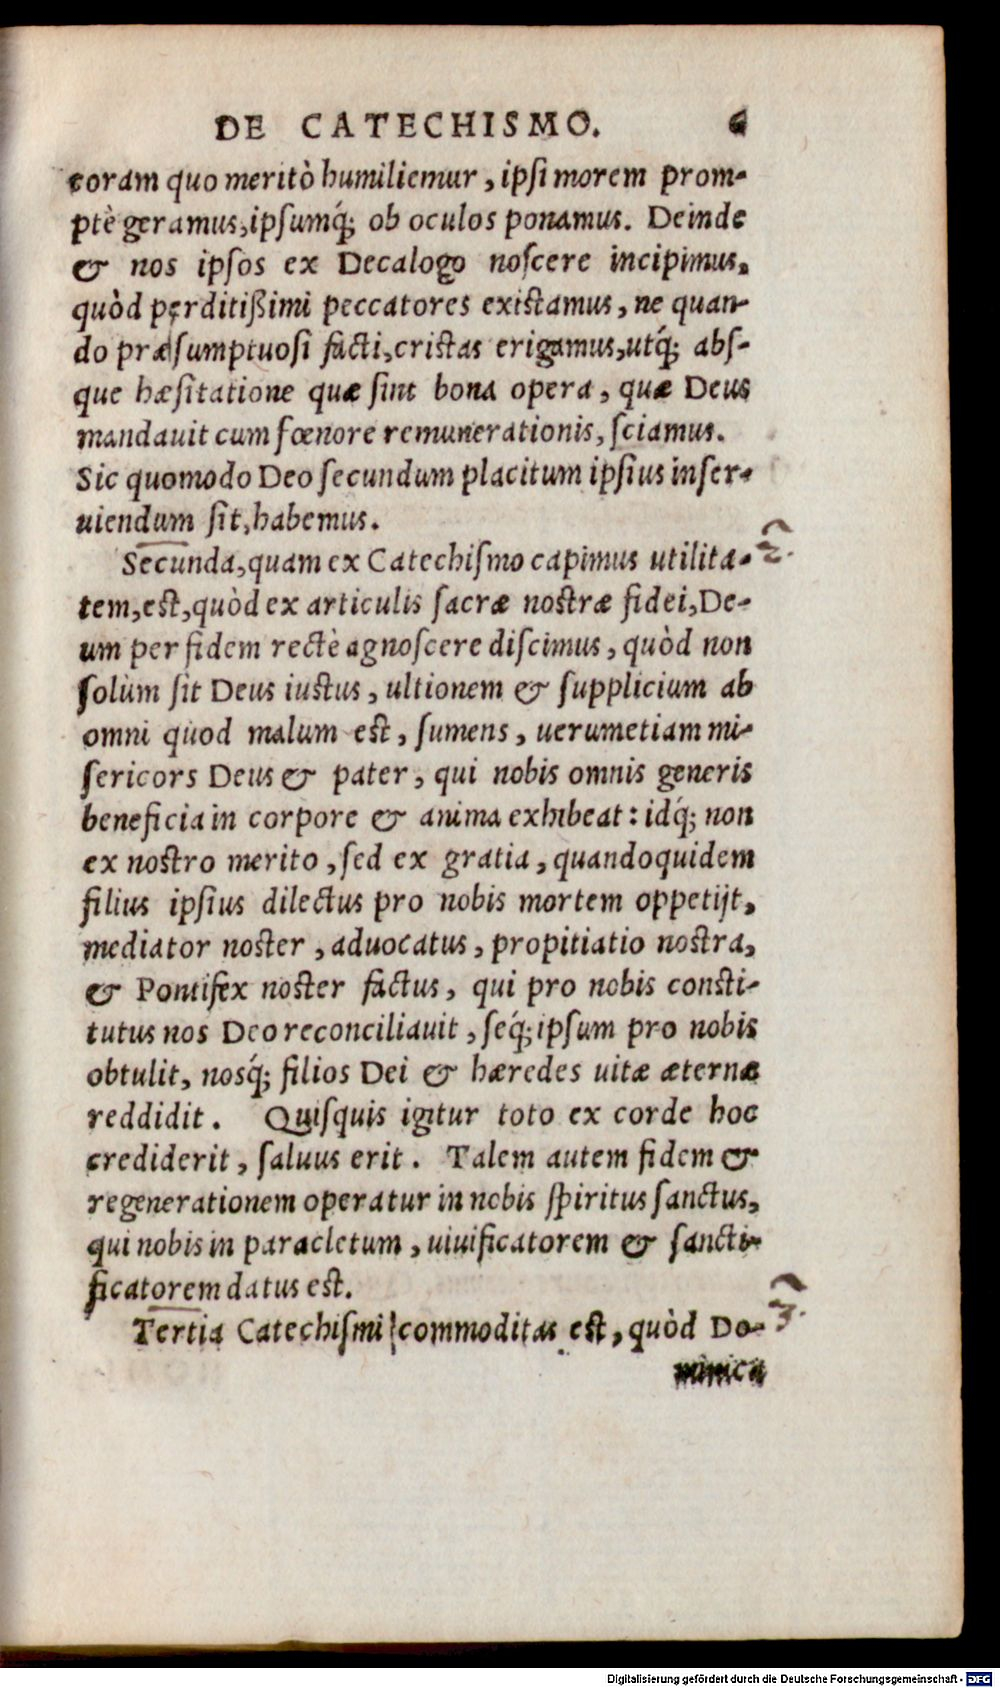 DE CATECHISMO. 6
coram quo meritò humiliemur, ipsi morem prom-
ptè geramus, ipsumq́; ob oculos ponamus. Deinde
& nos ipsos ex Decalogo noscere incipimus,
quòd perditißimi peccatores existamus, ne quan-
do præsumptuosi facti, cristas erigamus, utq́; abs-
que hæsitatione quæ sint bona opera, quæ Deus
mandauit cum fœnore remunerationis, sciamus.
Sic quomodo Deo secundum placitum ipsius inser-
uiendum sit, habemus.
Secunda, quam ex Catechismo capimus utilita- 2.
tem, est, quòd ex articulis sacræ nostræ fidei, De-
um per fidem rectè agnoscere discimus, quòd non
solùm sit Deus iustus, ultionem & supplicium ab
omni quod malum est, sumens, uerumetiam mi-
sericors Deus & pater, qui nobis omnis generis
beneficia in corpore & anima exhibeat: idq́; non
ex nostro merito, sed ex gratia, quandoquidem
filius ipsius dilectus pro nobis mortem oppetijt,
mediator noster, aduocatus, propitiatio nostra,
& Pontifex noster factus, qui pro nobis consti-
tutus nos Deo reconciliauit, seq́; ipsum pro nobis
obtulit, nosq́; filios Dei & hæredes uitæ æternæ
reddidit. Quisquis igitur toto ex corde hoc
crediderit, saluus erit. Talem autem fidem &
regenerationem operatur in nobis spiritus sanctus,
qui nobis in paracletum, uiuificatorem & sancti-
ficatorem datus est.
Tertia Catechismi commoditas est, quòd Do- 3.
minica
Digitalisierung gefördert durch die Deutsche Forschungsgemeinschaft - DFG